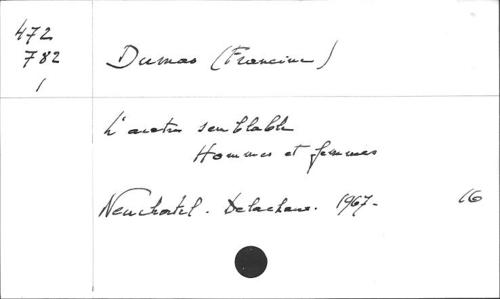 472
782
1
Dumas (Francine)
L'autre semblable
Hommes et femmes
Neuchâtel. Delachaux. 1967-
16